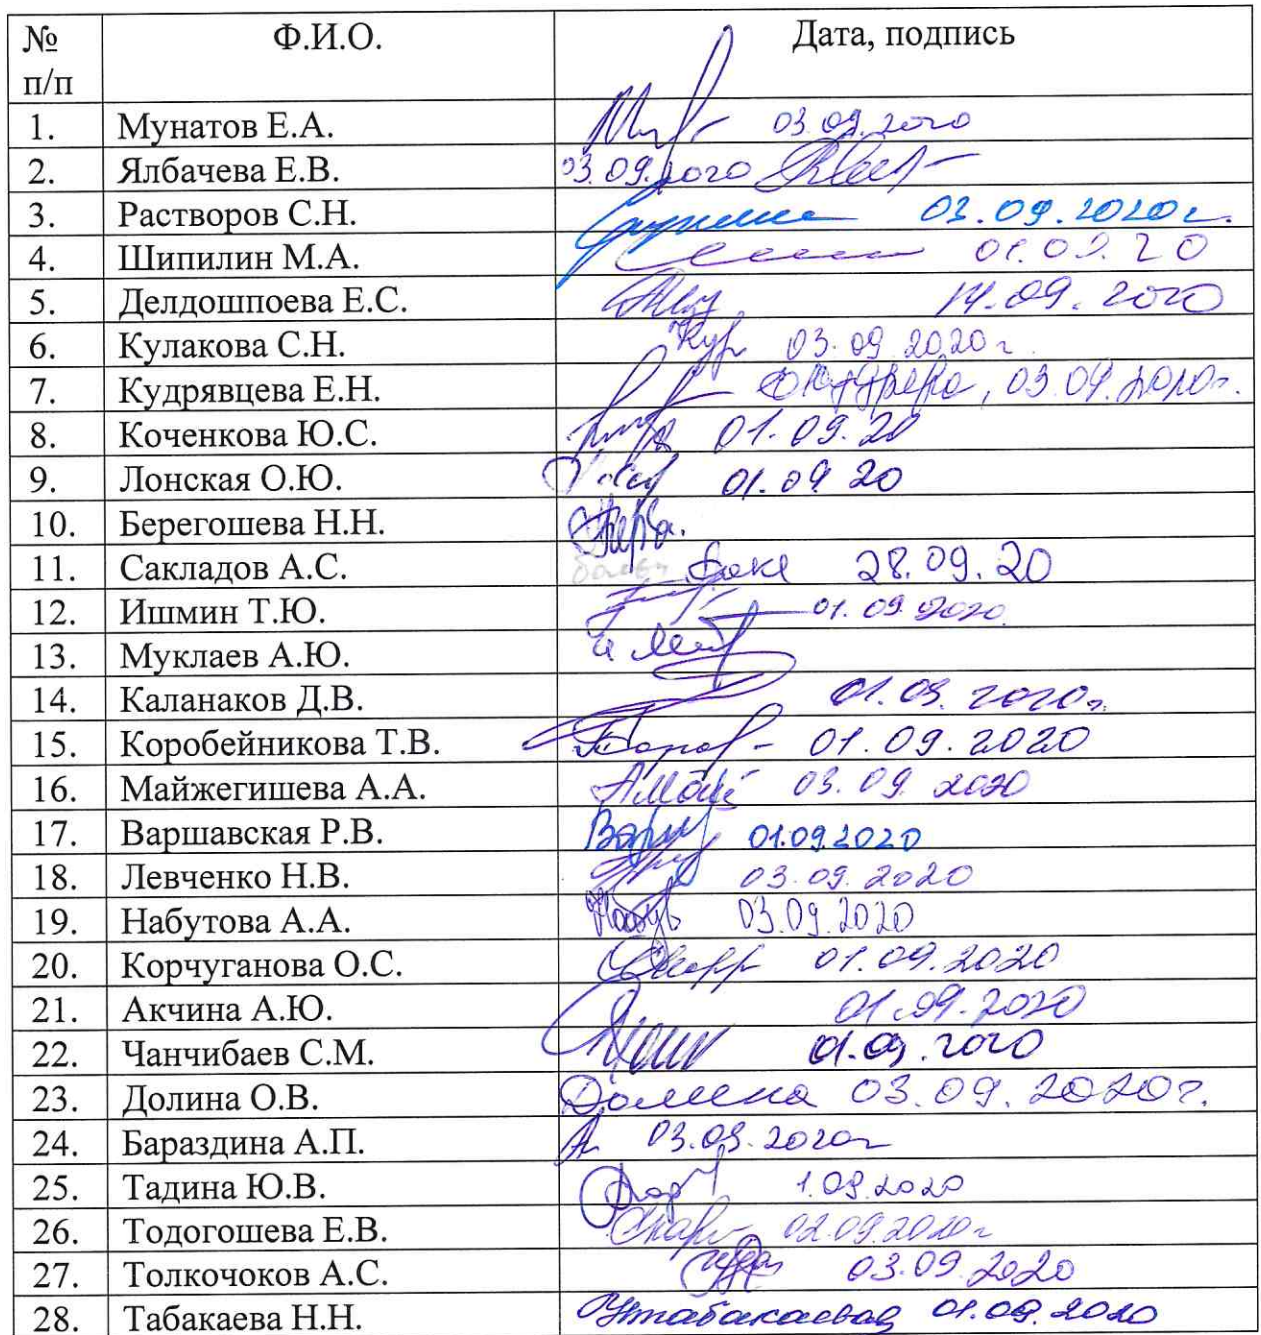 № п/п Ф.И.О. Дата, подпись
1. Мунатов Е.А. 03.09.2020
2. Ялбачева Е.В. 03.09.2020
3. Растворов С.Н. 03.09.2020г.
4. Шипилин М.А. 01.09.20
5. Делдошпоева Е.С. 14.09.2020
6. Кулакова С.Н. 03.09.2020г.
7. Кудрявцева Е.Н. 03.09.2020г.
8. Коченкова Ю.С. 01.09.20
9. Лонская О.Ю. 01.09.20
10. Берегошева Н.Н.
11. Сакладов А.С. 28.09.20
12. Ишмин Т.Ю. 01.09.2020
13. Муклаев А.Ю.
14. Каланаков Д.В. 01.09.2020г.
15. Коробейникова Т.В. 01.09.2020
16. Майжегишева А.А. 03.09.2020
17. Варшавская Р.В. 01.09.2020
18. Левченко Н.В. 03.09.2020
19. Набутова А.А. 03.09.2020
20. Корчуганова О.С. 01.09.2020
21. Акчина А.Ю. 01.09.2020
22. Чанчибаев С.М. 01.09.2020
23. Долина О.В. Долина 03.09.2020г.
24. Бараздина А.П. 03.09.2020г
25. Тадина Ю.В. 1.09.2020
26. Тодогошева Е.В. 02.09.2020г
27. Толкочоков А.С. 03.09.2020
28. Табакаева Н.Н. 01.09.2020